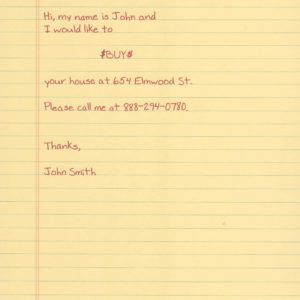 Hi, my name is John and
I would like to
$BUY$
your house at 654 Elmwood St.
Please call me at 888-294-0780.
Thanks,
John Smith